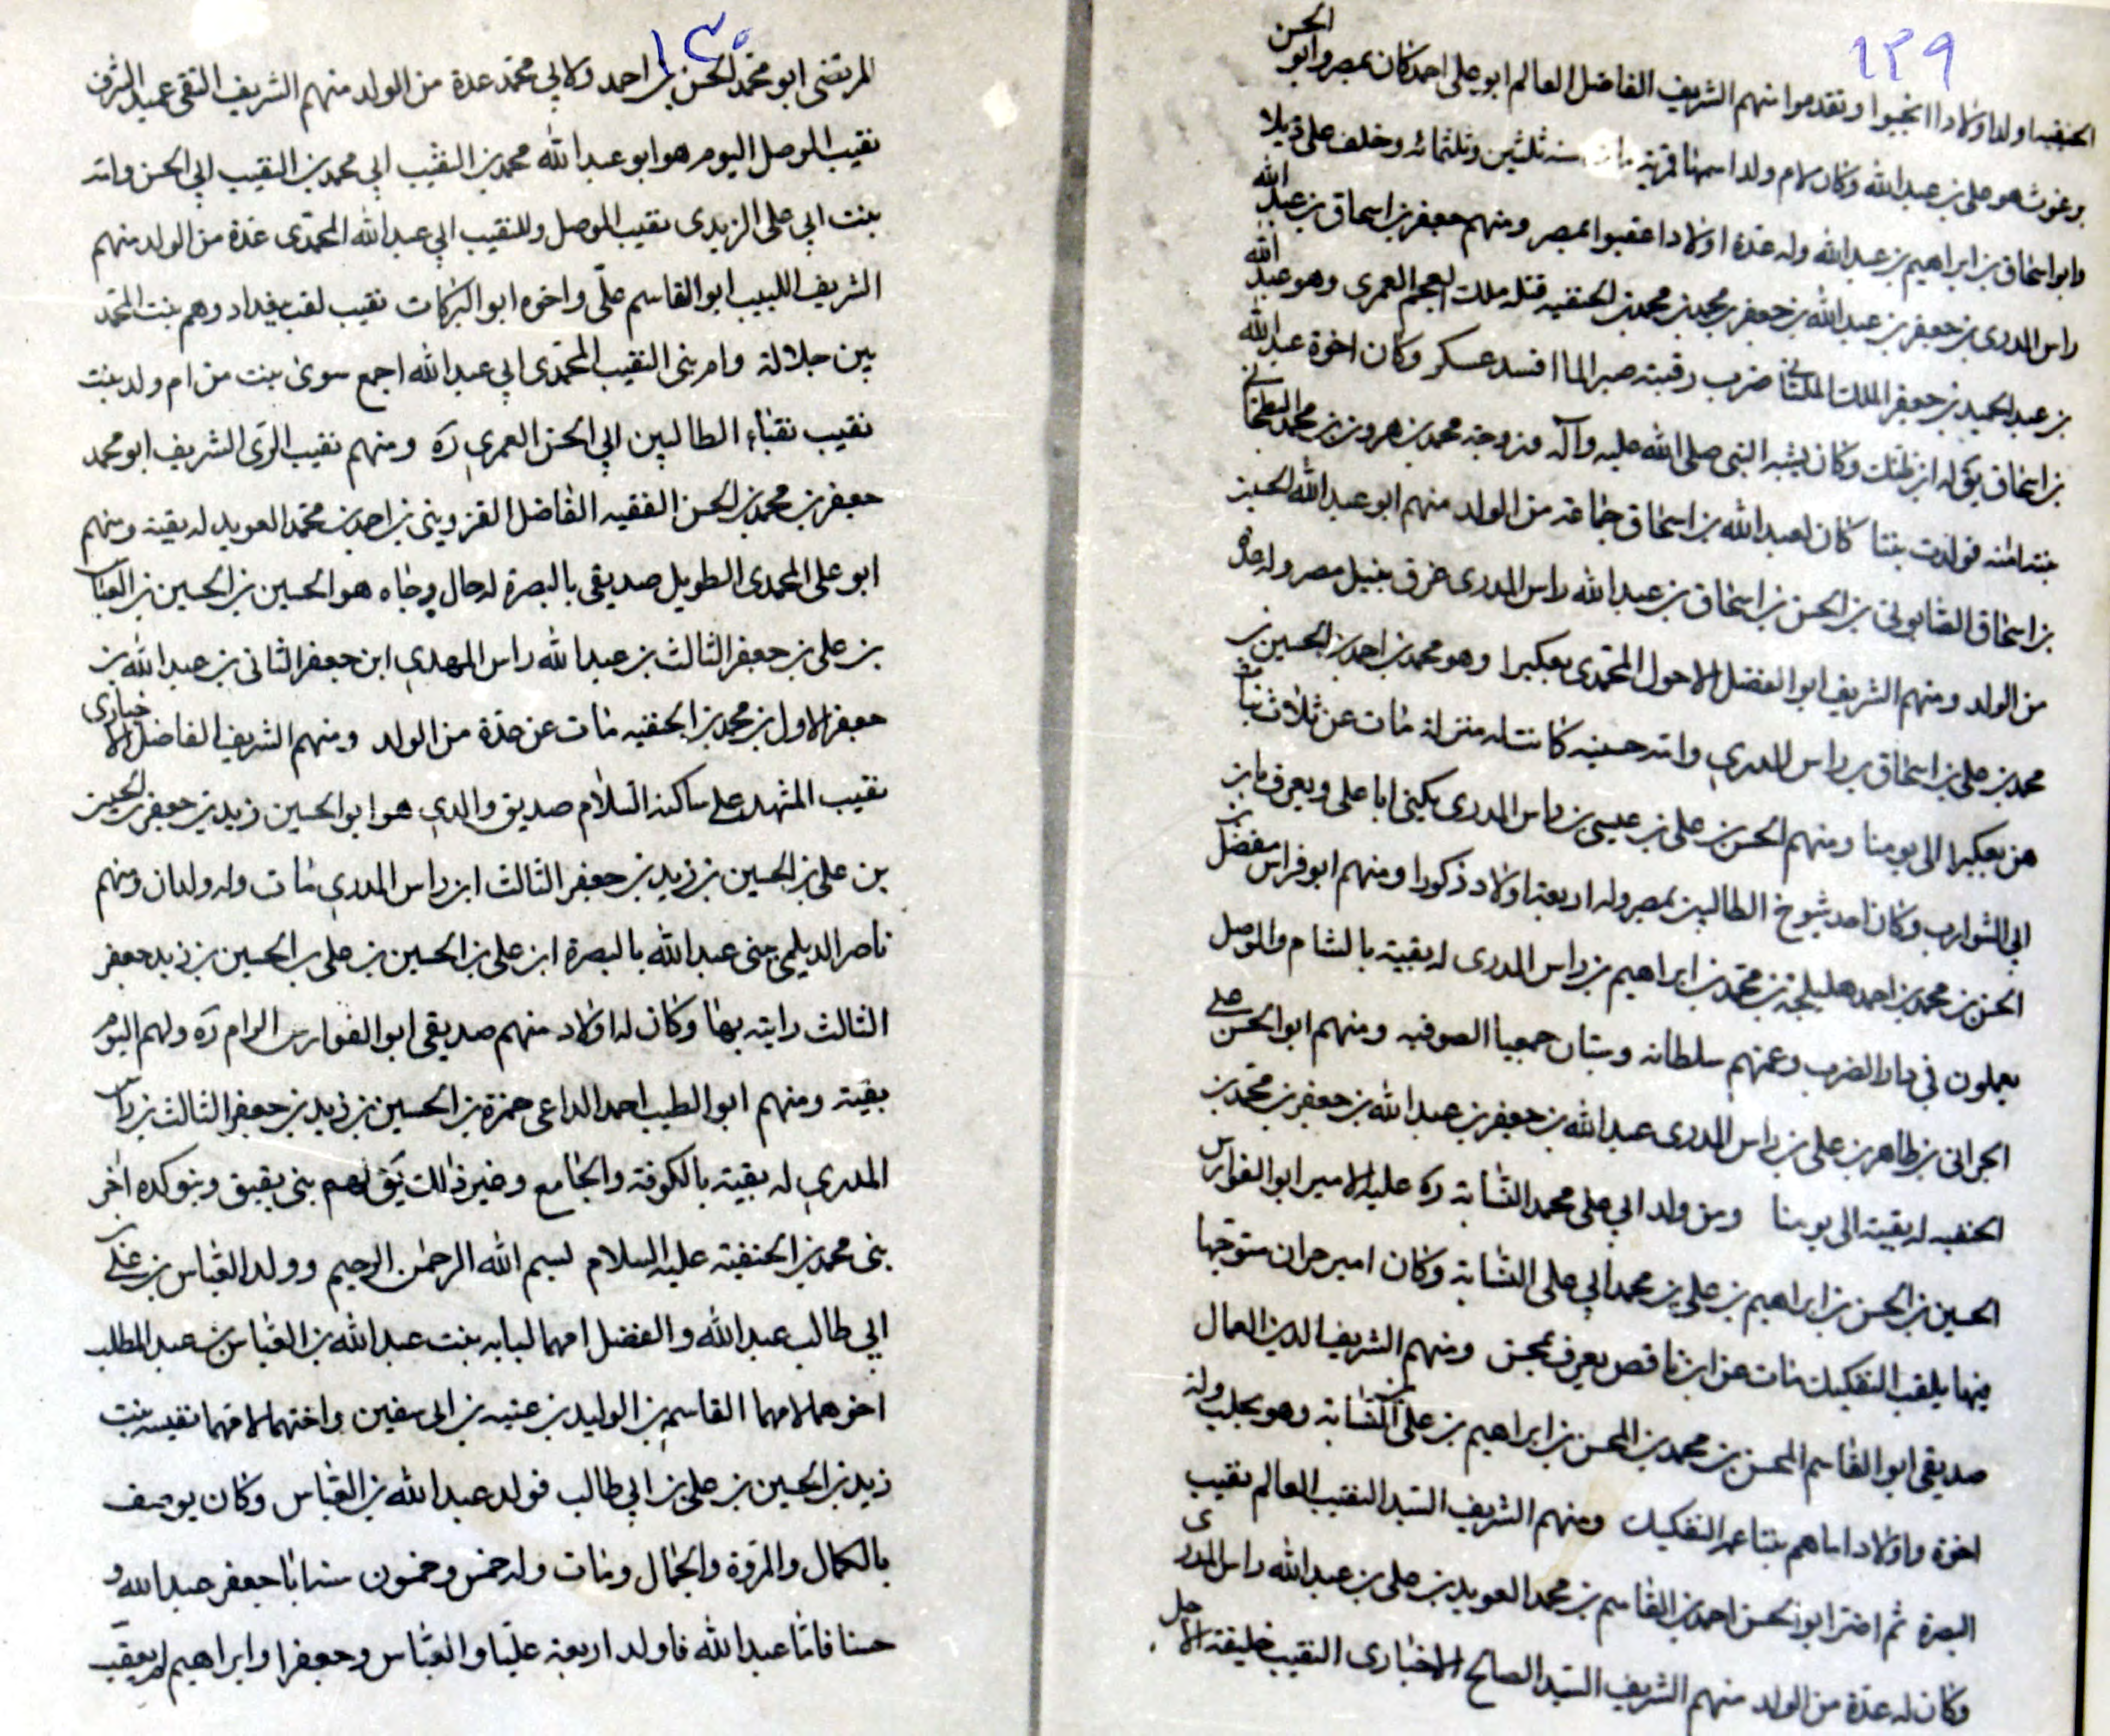 ١٢٩
الحنفيه اولد اولادا انجبوا وتقدموا منهم الشريف الفاضل العالم ابو على احمد كان بمصر وابو الحسن
هو على بن عبدالله وكان لام ولد اسمها سنه ثلثين وثلثمائه وخلف على ذيلا
وابو اسحاق بن ابراهيم بن عبدالله وله عدة اولادا اعقبوا بمصر ومنهم جعفر بن اسحاق بن عبد الله
راس المدرى بن جعفر بن عبدالله بن جعفر بن محمد بن محمد بن الحنفيه قتله ملك العجم العمرى وهو عبد الله
بن عبد الحميد بن جعفر الملك الملتانى ضرب رقبته صبرا لما افسد عسكر وكان اخوة عبد الله
بن اسحاق يق له ابن ظنك وكان يشبه النبى صلى الله عليه وآله وزوجه محمد بن هرون بن محمد البطحانى
بنته امنه فولدت بنتا كان لعبد الله بن اسحاق جماعة من الولد منهم ابو عبد الله الحسين
بن اسحاق الصابونى بن الحسن بن اسحاق بن عبدالله راس المدرى غرق بنيل مصر وله عدة
من الولد ومنهم الشريف ابو الفضل الاحول المحمدى بعكبرا وهو محمد بن احمد بن الحسين بن
محمد بن على بن اسحاق بن راس المدرى وامه حسينه كانت له منزلة مات عن ثلاث بنات
هن بعكبرا الى يومنا ومنهم الحسن بن على بن عيسى بن راس المدرى يكنى ابا على ويعرف بابن
ابى الشوارب وكان احد شيوخ الطالبين بمصر وله اربعة اولاد ذكورا ومنهم ابو فراس مفضل بن
الحسن بن محمد بن احمد هليلجة بن محمد بن ابراهيم بن راس المدرى له بقية بالشام والموصل
يعملون فى دار الضرب وعنهم سلطانه جمعيا الصوفيه ومنهم ابو الحسن على
الحرانى بن طاهر بن على بن راس المدرى عبد الله بن جعفر بن عبد الله بن جعفر بن محمد بن
الحنفيه له بقية الى يومنا ومن ولد ابى على محمد النسابة ره عليه الامير ابو الفوارس
الحسين بن الحسن بن ابراهيم بن على بن محمد ابى على النسابة وكان امير حران متوجها
فيها يلقب التفكيك مات عن ابن ناقص يعرف بمحسن ومنهم الشريف الدين العمال
صديقى ابو القاسم المحسن بن محمد بن المحسن بن ابراهيم بن على بن النسابة وهو بحلب وله
اخوة واولاد اماهم بنتا عم التفكيك ومنهم الشريف السيد النقيب العالم نقيب
البصرة ثم ابو الحسن احمد بن القاسم بن محمد العويد بن على بن عبدالله راس المدرى
وكان له عدة من الولد منهم الشريف السيد الصالح الاخبارى النقيب خليفة الاجل
١٣٠
المرتضى ابو محمد الحسن بن احمد ولابى محمد عدة من الولد منهم الشريف التقى عميد الشرف
نقيب الموصل اليوم هو ابو عبد الله محمد بن النقيب ابى محمد بن النقيب ابى الحسن وامه
بنت ابى على الزيدى نقيب الموصل وللنقيب ابى عبد الله المحمدى عدة من الولد منهم
الشريف اللبيب ابو القاسم على واخوه ابو البركات نقيب لقب ببغداد وهم بنت المحمد
بين جلالة وام بنى النقيب المحمدى ابى عبد الله اجمع سوى بنت من ام ولد بنت
نقيب نقباء الطالبين ابى الحسن العمرى ره ومنهم نقيب الرى الشريف ابو محمد
جعفر بن محمد بن الحسن الفقيه الفاضل القزوينى بن احمد بن محمد العويد له بقية ومنهم
ابو على المحمدى الطويل صديقى بالبصرة له حال وجاه هو الحسين بن الحسين بن العباس
بن على بن جعفر الثالث بن عبد الله راس المهدى ابن جعفر الثانى بن عبد الله بن
جعفر الاول بن محمد بن الحنفيه مات عن عدة من الولد ومنهم الشريف الفاضل الاخبارى
نقيب المشهد على ساكنه السلام صديق والدى هو ابو الحسين زيد بن جعفر بن الحسين
بن على بن الحسين بن زيد بن جعفر الثالث ابن راس المدرى مات وله ولدان ومنهم
ناصر الديلمى جنى عبد الله بالبصرة ابن على بن الحسين بن على بن الحسين بن زيد جعفر
الثالث رايته بها وكان له اولاد منهم صديقى ابو الفوارس الرام ره ولهم اليوم
بقية ومنهم ابو الطيب احمد الداعى حمزة بن الحسين بن زيد بن جعفر الثالث بن راس
المدرى له بقية بالكوفة والجامع وغير ذلك يق لهم بنى بقبق وبنو كده اخر
بنى محمد بن الحنفية عليه السلام بسم الله الرحمن الرحيم وولد العباس بن على
ابى طالب عبد الله والفضل امهما لبابه بنت عبد الله بن العباس بن عبد المطلب
اخوهما لامهما القاسم بن الوليد بن عتبه بن ابى سفين واختهما لامهما نفيسه بنت
زيد بن الحسين بن على بن ابى طالب فولد عبد الله بن العباس وكان يوصف
بالكمال والمروة والجمال ومات وله خمس وخمسون سنه ابا جعفر عبد الله و
حسنا فاما عبد الله فاولد اربعة عليا والعباس وجعفرا وابراهيم لم يعقب